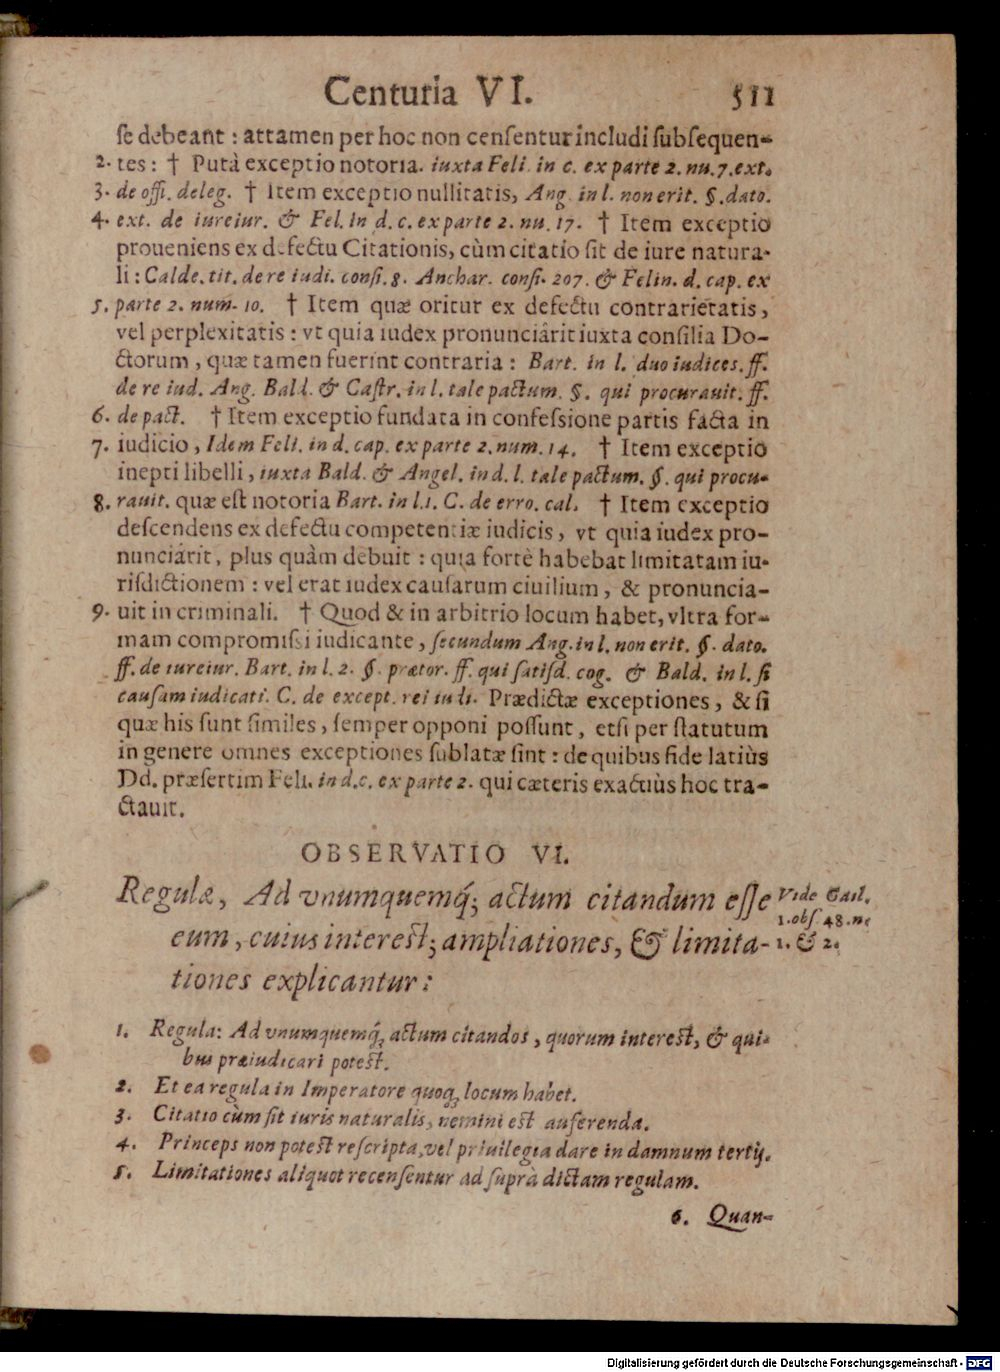 Centuria VI. 511
se debeant : attamen per hoc non censentur includi subsequen-
2. tes : † Putà exceptio notoria. iuxta Feli. in c. ex parte 2. nu. 7. ext.
3. de offi. deleg. † Item exceptio nullitatis, Ang. in l. non erit. §. dato.
4. ext. de iureiur. & Fel. in d. c. ex parte 2. nu. 17. † Item exceptio
proueniens ex defectu Citationis, cùm citatio sit de iure natura-
li : Calde. tit. de re iudi. consi. 8. Anchar. consi. 207. & Felin. d. cap. ex
5. parte 2. num. 10. † Item quæ oritur ex defectu contrarietatis,
vel perplexitatis : vt quia iudex pronunciârit iuxta consilia Do-
ctorum, quæ tamen fuerint contraria : Bart. in l. duo iudices. ff.
de re iud. Ang. Bald. & Castr. in l. tale pactum. §. qui procurauit. ff.
6. de pact. † Item exceptio fundata in confessione partis facta in
7. iudicio, Idem Feli. in d. cap. ex parte 2. num. 14. † Item exceptio
inepti libelli, iuxta Bald. & Angel. in d. l. tale pactum. §. qui procu-
8. rauit. quæ est notoria Bart. in l.1. C. de erro. cal. † Item exceptio
descendens ex defectu competentiæ iudicis, vt quia iudex pro-
nunciârit, plus quàm debuit : quia fortè habebat limitatam iu-
risdictionem : vel erat iudex causarum ciuilium, & pronuncia-
9. uit in criminali. † Quod & in arbitrio locum habet, vltra for-
mam compromissi iudicante, secundum Ang. in l. non erit. §. dato.
ff. de iureiur. Bart. in l. 2. §. prætor. ff. qui satisd. cog. & Bald. in l. si
causam iudicati. C. de except. rei iudi. Prædictæ exceptiones, & si
quæ his sunt similes, semper opponi possunt, etsi per statutum
in genere omnes exceptiones sublatæ sint : de quibus fide latiùs
Dd. præsertim Feli. in d.c. ex parte 2. qui cæteris exactiùs hoc tra-
ctauit.
OBSERVATIO VI.
Regulæ, Ad vnumquemq́; actum citandum esse
eum, cuius interest; ampliationes, & limita-
tiones explicantur :
Vide Gail.
1. obs. 48. n.
1. & 2.
1. Regula: Ad vnumquemq́; actum citandos, quorum interest, & qui-
bus præiudicari potest.
2. Et ea regula in Imperatore quoq; locum habet.
3. Citatio cùm sit iuris naturalis, nemini est auferenda.
4. Princeps non potest rescripta, vel priuilegia dare in damnum tertij.
5. Limitationes aliquot recensentur ad suprà dictam regulam.
6. Quan-
Digitalisierung gefördert durch die Deutsche Forschungsgemeinschaft - DFG